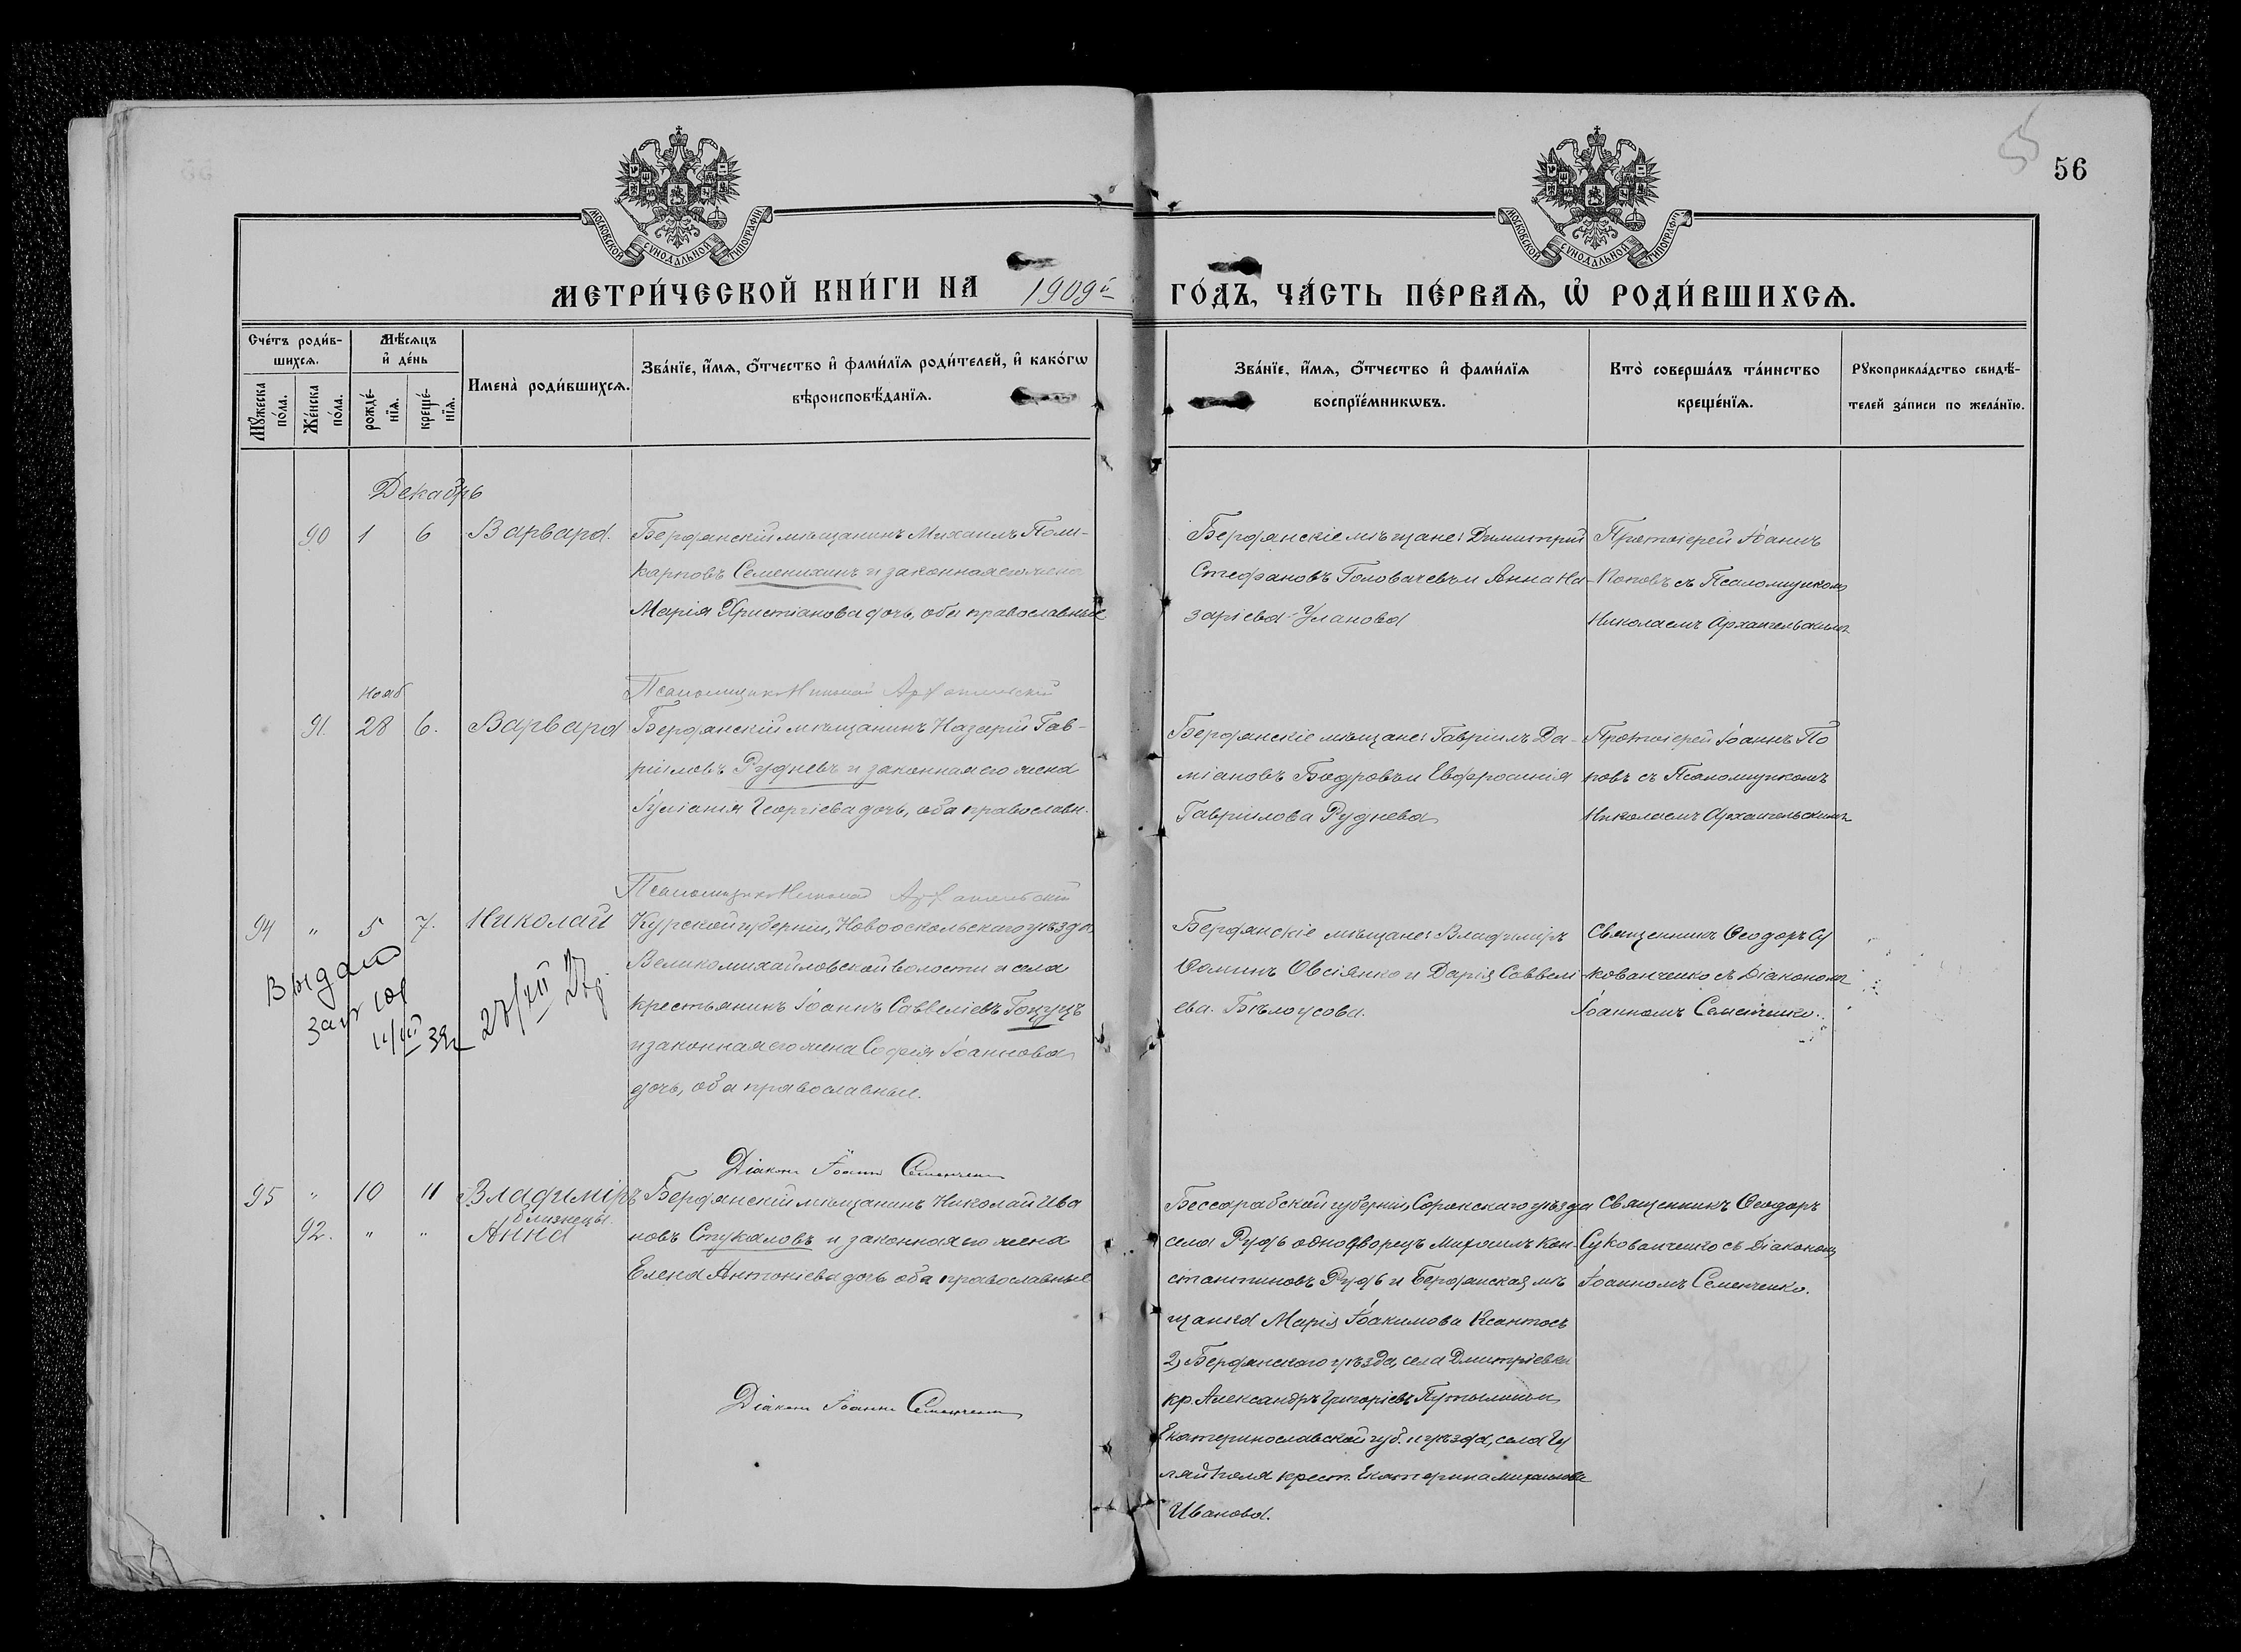 56
МОСКОВСКОЙ СѴНОДАЛЬНОЙ ТИПОГРАФІИ
МОСКОВСКОЙ СѴНОДАЛЬНОЙ ТИПОГРАФІИ
МЕТРИ́ЧЕСКОЙ КНИ́ГИ НА 1909й ГО́ДЪ, ЧА́СТЬ ПЕ́РВАѦ, Ѽ РОДИ́ВШИХСѦ.
Сче́тъ роди́в-
шихсѧ.
Мѣ́сѧцъ
и҆ де́нь
Мꙋ́жеска
по́ла.
Же́нска
по́ла.
рожде́-
нїѧ.
креще́-
нїѧ.
Имена̀ роди́вшихсѧ.
Зва́нїе, и҆́мѧ, ѻ҆́тчество и҆ фами́лїѧ роди́телей, и҆ како́гѡ
вѣроисповѣ́данїѧ.
Зва́нїе, и҆́мѧ, ѻ҆́тчество и҆ фами́лїѧ
воспрїе́мникѡвъ.
Кто̀ соверша́лъ та́инство
креще́нїѧ.
Рꙋкоприкла́дство свидѣ́-
телей за́писи по жела́нїю.
Декабрь
90 1 6 Варвара.
Бердянскій мѣщанинъ Михаилъ Поли-
карповъ Семенихинъ и законная его жена
Марія Христіанова дочь, оба православные
Бердянскіе мѣщане: Димитрій
Стефановъ Головачевъ и Анна На-
заріева Уланова
Протоіерей Іоаннъ
Поповъ съ Псаломщикомъ
Николаемъ Архангельскимъ
Псаломщикъ Николай Архангельскій
Нояб
91. 28 6. Варвара
Бердянскій мѣщанинъ Назарій Гав-
ріиловъ Рудневъ и законная его жена
Іуліанія Георгіева дочь, оба православн.
Бердянскіе мѣщане: Гавріилъ Да-
міановъ Бодровъ и Евфросинія
Гавріилова Руднева
Протоіерей Іоаннъ По
повъ съ Псаломщикомъ
Николаемъ Архангельскимъ
Псаломщикъ Николай Архангельскій
94 " 5 7. Николай
Курской губерніи, Новооскольскаго уѣзда,
Великомихайловской волости и села
крестьянинъ Іоаннъ Саввеліевъ Гокуцъ
и законная его жена Софія Іоаннова
дочь, оба православные.
Выдано
28/XII 27г.
11/VII 39г
Бердянскіе мѣщане: Владиміръ
Ѳоминъ Овсіянко и Дарія Саввелі-
ева Бѣлоусова.
Священникъ Ѳеодоръ Су
кованченко съ Діакономъ
Іоанномъ Семенченко.
Діаконъ Іоаннъ Семенченко
95 " 10 11 Владиміръ
близнецы.
92. " " Анна
Бердянскій мѣщанинъ Николай Ива
новъ Стукаловъ и законная его жена
Елена Антоніева дочь оба православные
Бессарабской губерніи, Сорокскаго уѣзда
села Рудь однодворецъ Михаилъ Кон-
стантиновъ Рудь и Бердянская мѣ
щанка Марія Іоакимова Ксантосъ
2) Бердянскаго уѣзда, села Дмитріевки
кр. Александръ Григоріевъ Путылинъ и
Екатеринославской губ. и уѣзда, села Гу
ляйполя крест. Екатерина Михаилова
Иванова.
Священникъ Ѳеодоръ
Сукованченко съ Діакономъ
Іоанномъ Семенченко.
Діаконъ Іоаннъ Семенченко